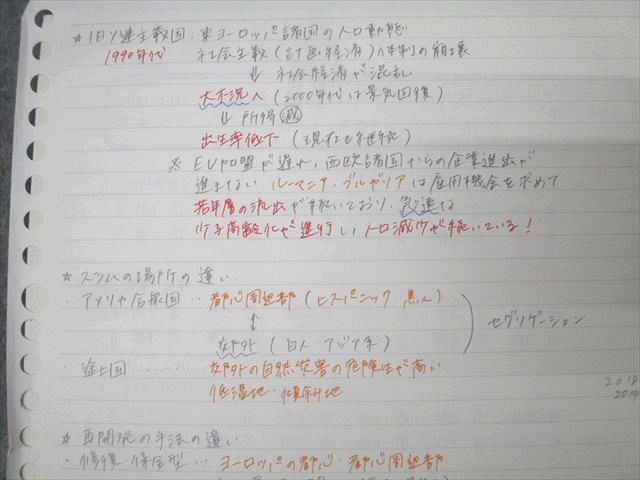 ☆ 旧ソ連主数国、東ヨーロッパ諸国の人口動態
1990年代 社会主義(計画経済)体制の崩壊
⇓ 社会経済が混乱
大不況へ (2000年代は景気回復)
⇓ 所得減
出生率低下 (現在も継続)
※ EU加盟が遅れ、西欧諸国からの企業進出が
進まない ルーマニア・ブルガリアは雇用機会を求めて
若年層の流出が続いており、急速な
少子高齢化が進行し 人口減少が続いている!
☆ スラムの場所の違い
・アメリカ合衆国 … 都心周辺部 (ヒスパニック 黒人)
↕
郊外 (白人・アジア系)
セグリゲーション
・途上国 ……… 郊外の自然災害の危険性が高い
低湿地・傾斜地
2018
2019
☆ 再開発の手法の違い
・修復・保全型 … ヨーロッパの都心・都心周辺部